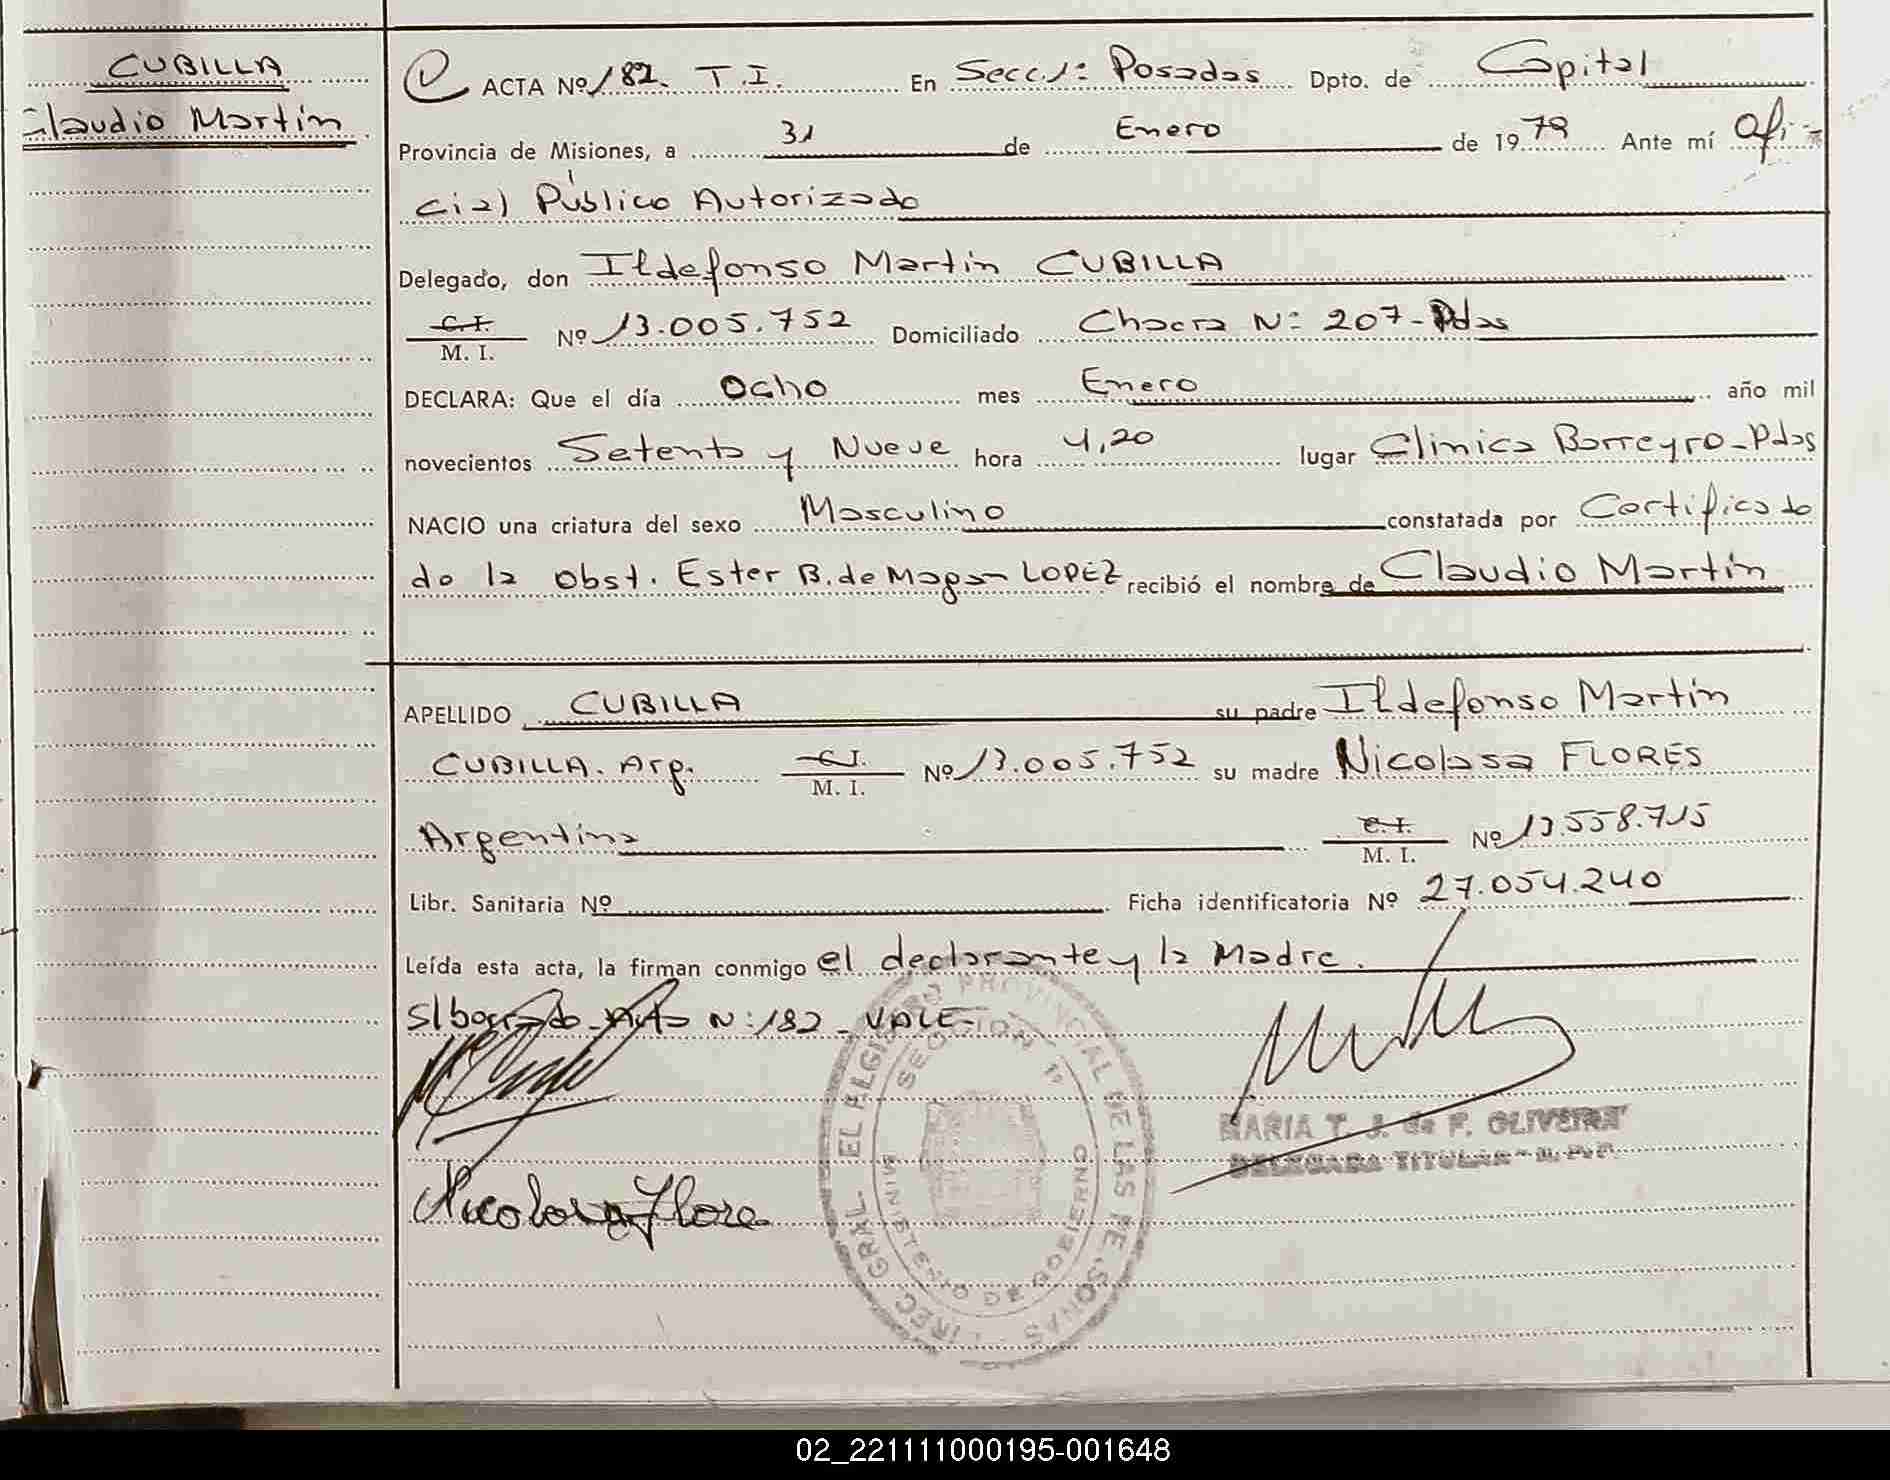 CUBILLA
Claudio Martín
ACTA Nº 182. T.I. En Secc. 1ª Posadas Dpto. de Capital
Provincia de Misiones, a 31 de Enero de 1979 Ante mí Ofi-
cial Público Autorizado
Delegado, don Ildefonso Martín CUBILLA
C.I.
M. I. Nº 13.005.752 Domiciliado Chacra Nº 207-Pdas
DECLARA: Que el día Ocho mes Enero año mil
novecientos Setenta y Nueve hora 4,20 lugar Clinica Barreyro-Pdas
NACIO una criatura del sexo Masculino constatada por Certificado
de la Obst. Ester B. de Magan LOPEZ recibió el nombre de Claudio Martín
APELLIDO CUBILLA su padre Ildefonso Martín
CUBILLA. Arg. C.I. M. I. Nº 13.005.752 su madre Nicolasa FLORES
Argentina C.I. M. I. Nº 13.558.715
Libr. Sanitaria Nº Ficha identificatoria Nº 27.054.240
Leída esta acta, la firman conmigo el declarante y la Madre.
S/borrado-Acta Nº 182-VALE-
Nicolasa Flore
MARIA T. J. de F. OLIVEIRA
DELEGADA TITULAR
SECCION 1ª
MINISTERIO DE GOBIERNO
02_221111000195-001648